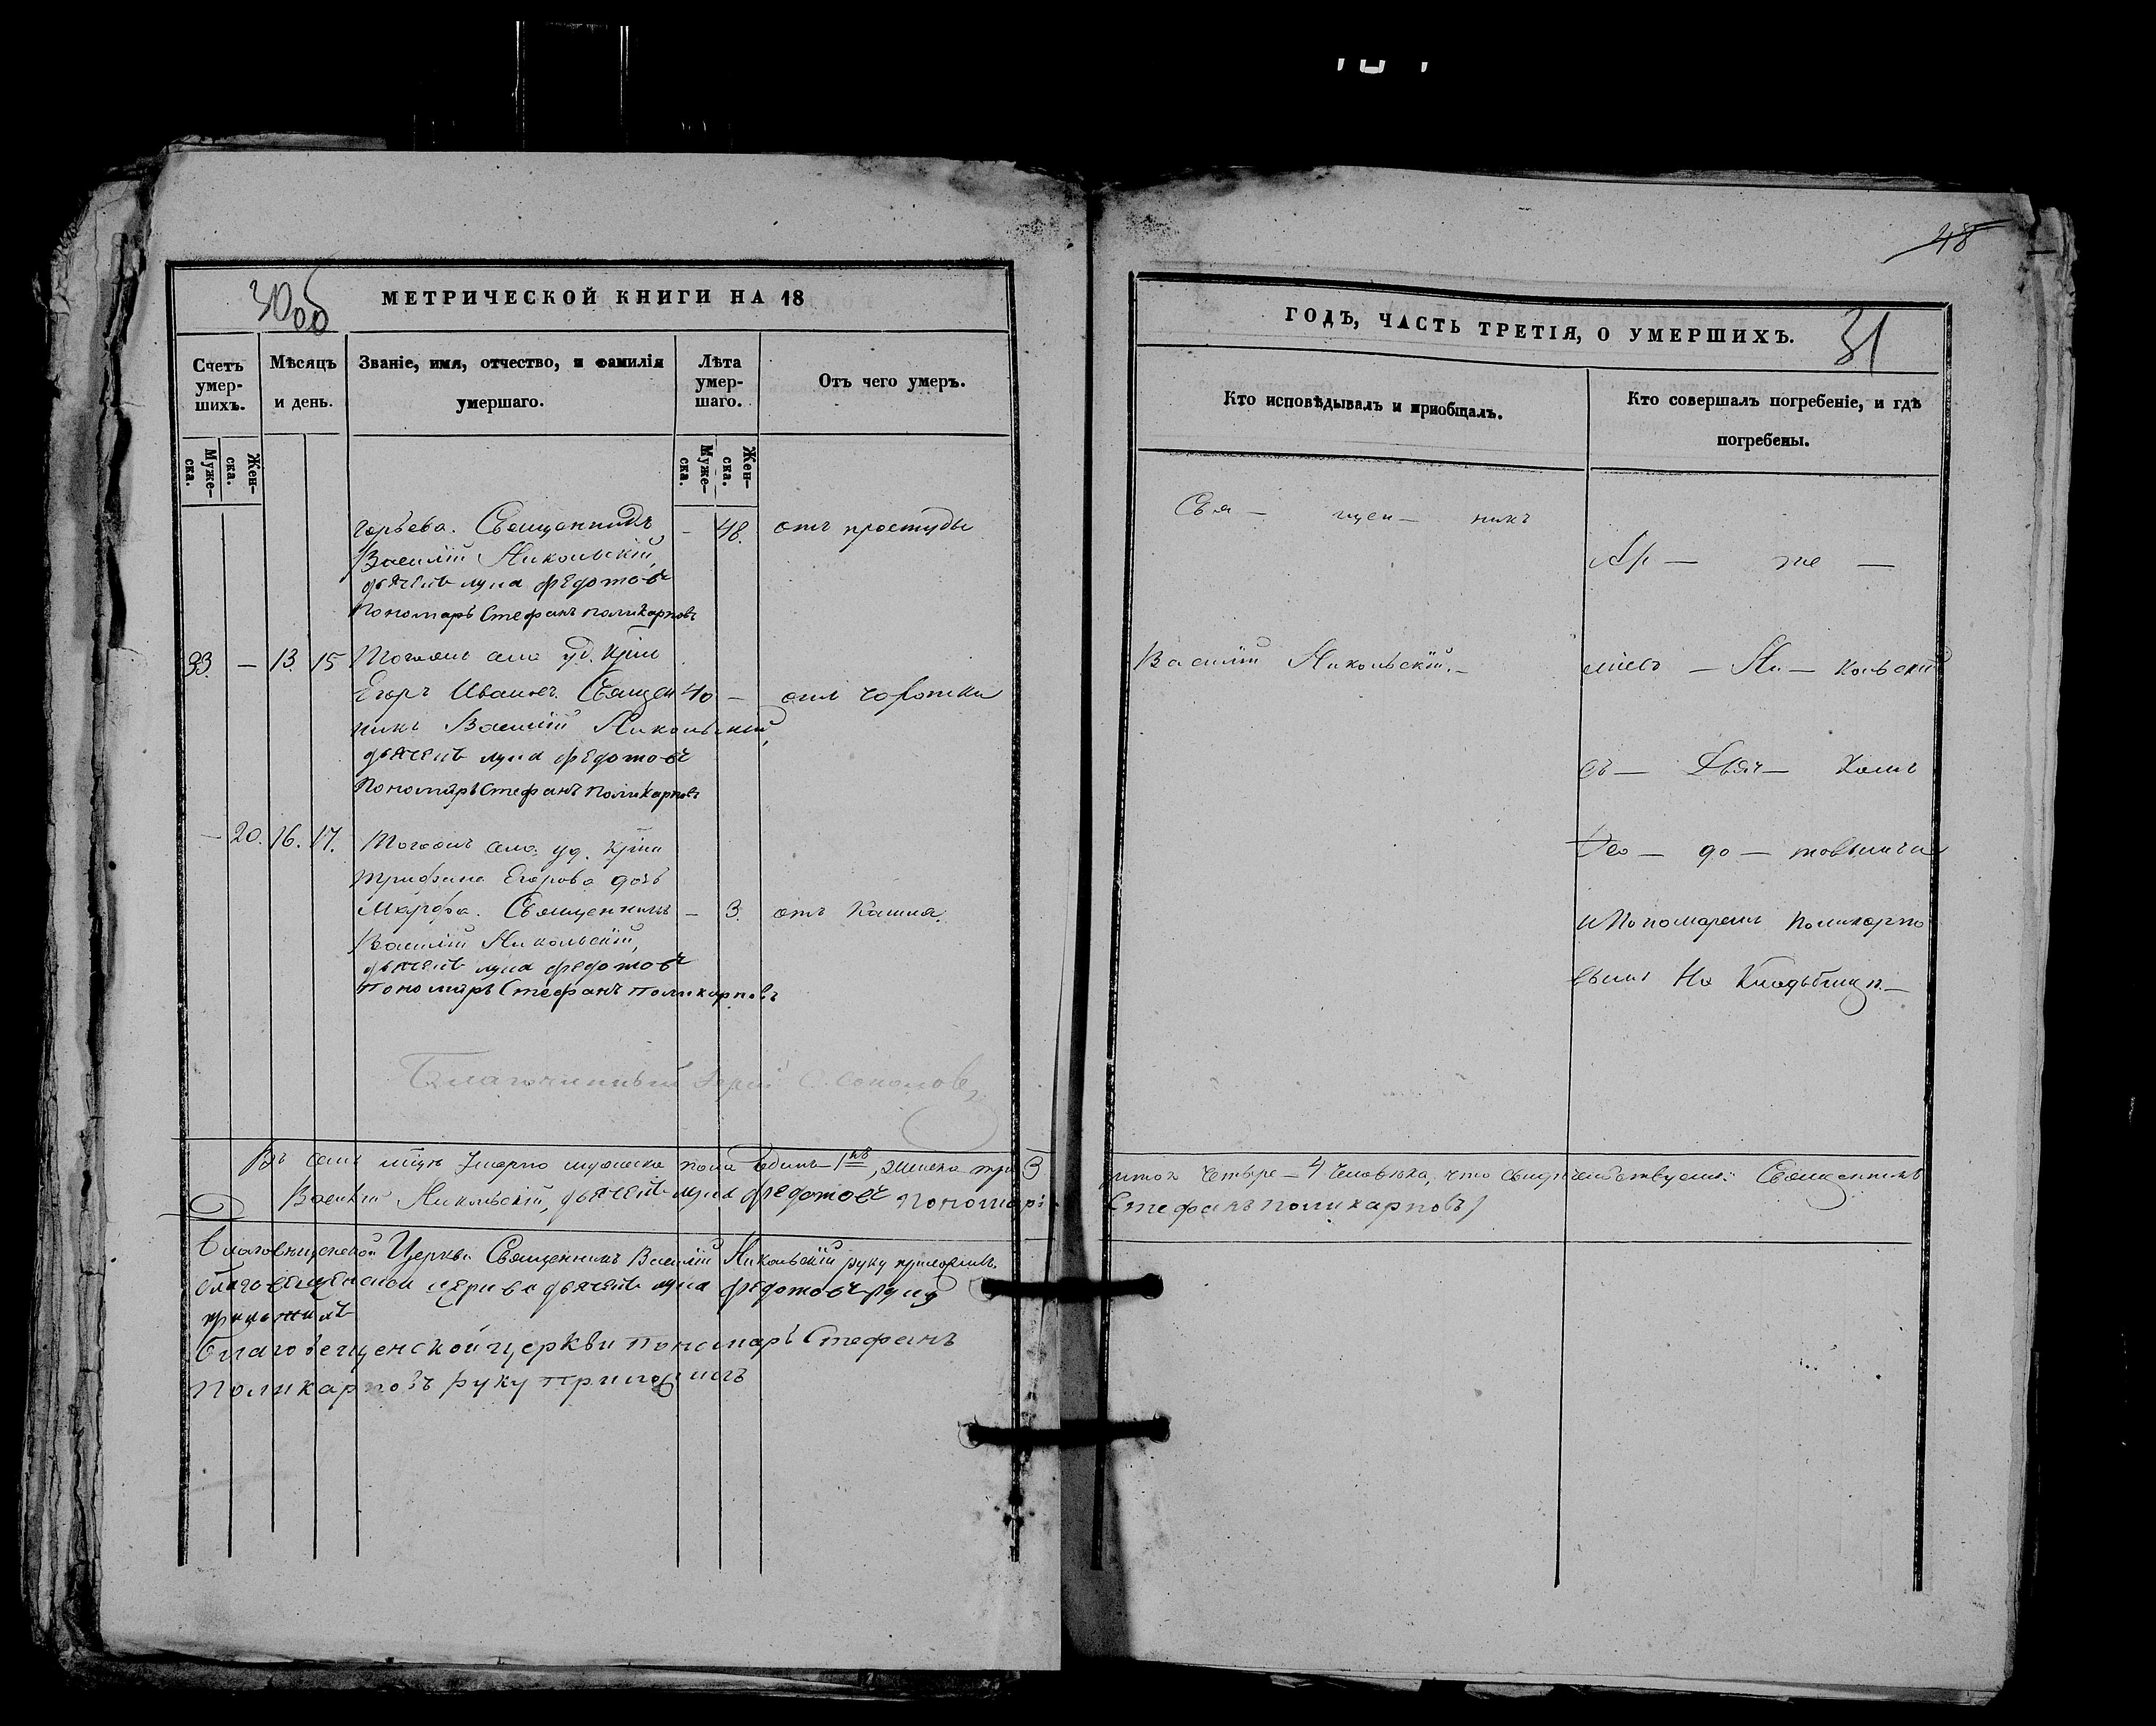 48
30об
МЕТРИЧЕСКОЙ КНИГИ НА 18
Счетъ умер-шихъ.
Мѣсяцъ и день.
Званіе, имя, отчество, и фамилія умершаго.
Лѣта умер-шаго.
Отъ чего умеръ.
Муже-ска.
Жен-ска.
Муже-ска.
Жен-ска.
горьева. Священникъ – 48. отъ простуды
Василій Никольскій,
дьячекъ лука федотовъ
Пономарь Стефанъ поликарповъ
33. – 13. 15 Тогоже села уд. Крѣ
Егоръ Ивановъ. Священ 40 – отъ чахотки
никъ Василій Никольскій,
дьячекъ лука федотовъ
Пономарь Стефанъ Поликарповъ
– 20. 16. 17. Тогожъ села уд. Крѣ
трифона Егорова дочь
Марфа. Священникъ – 3. отъ Кашля.
Василій Никольскій,
дьячекъ лука федотовъ
пономарь Стефанъ поликарповъ
Благочинный Іерей С. Соколовъ
Въ семъ м-цѣ Умерло мужеска пола единъ – 1нъ, женска три 3
Василій Никольскій, дьячекъ лука федотовъ Пономарь
благовѣщенской Церкви Священникъ Василій Никольскій руку приложилъ.
благовещенской церкви дьячекъ лука федотовъ руку
приложилъ
благовещенской церкви пономарь Стефанъ
Поликарповъ руку приложилъ
ГОДЪ, ЧАСТЬ ТРЕТІЯ, О УМЕРШИХЪ.
31
Кто исповѣдывалъ и пріобщалъ.
Кто совершалъ погребеніе, и гдѣ погребены.
Свя – щен – никъ
Василій Никольскій. –
же –
Ни – кольскій
съ – Дьяч – комъ
Ѳео – до – товымъ
и Пономаремъ Поликарпо
вымъ На Кладбищѣ. –
итого четыре – 4 человѣка, что свидѣтельствуемъ: Священникъ
Стефанъ поликарповъ